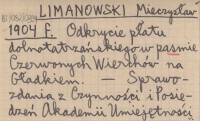 LIMANOWSKI Mieczysław
1904 F. Odkrycie płatu
dolnotatrzańskiego w paśmie
Czerwonych Wierchów na
Gładkiem — Sprawo-
zdania z Czynności i Posie-
dzeń Akademii Umiejętności